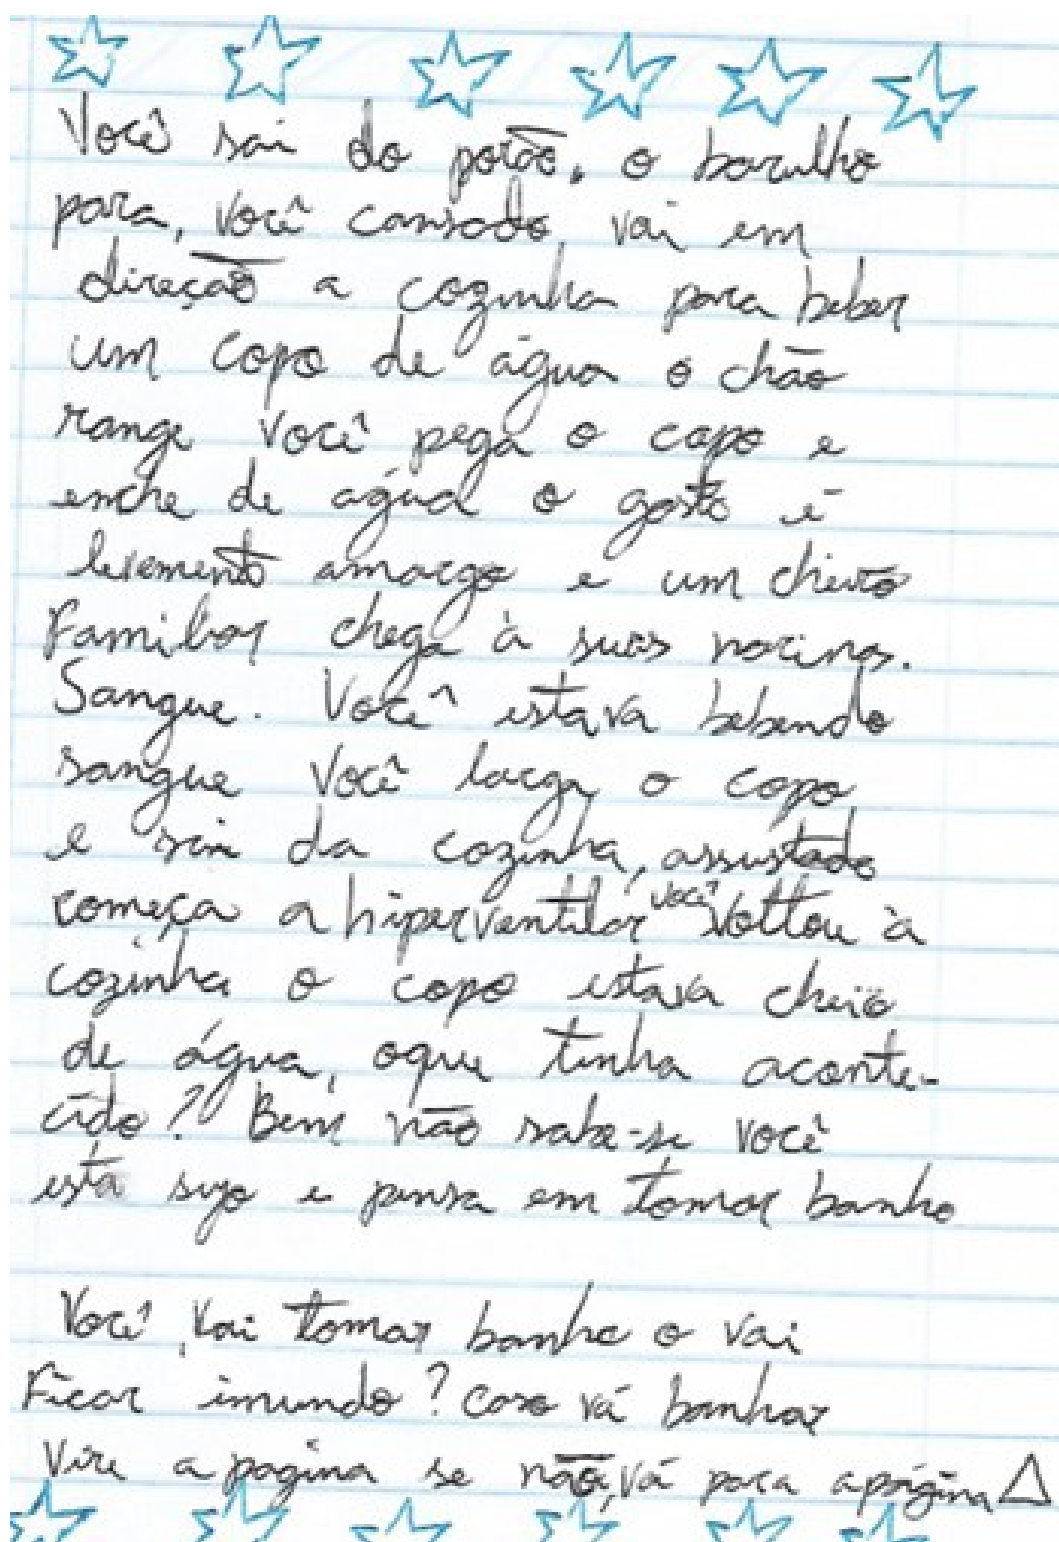 Você sai do porão, o barulho
para, você cansado, vai em
direção a cozinha para beber
um copo de água o chão
range você pega o copo e
enche de água o gosto é
levemento amargo e um cheiro
familiar chega à suas narinas.
Sangue. Você estava bebendo
sangue você larga o copo
e sai da cozinha, assustado
começa a hiperventilar você voltou à
cozinha o copo estava cheio
de água, oque tinha aconte-
cido? Bem não sabe-se você
está sujo e pensa em tomar banho
Você, vai tomar banho o vai
Ficar imundo? Caso vá banhar
Vire a pagina se não, vá para apágina △